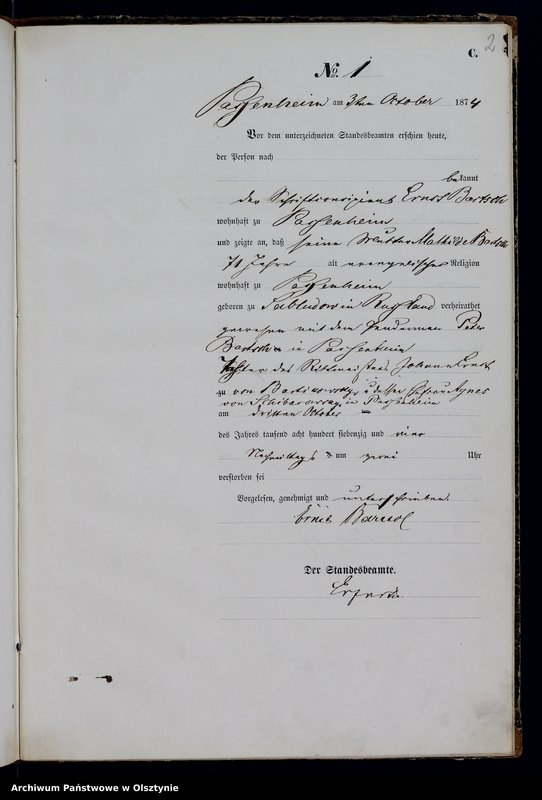 2
C.
No. 1
Passenheim am 3ten October 1874
Vor dem unterzeichneten Standesbeamten erschien heute,
der Person nach
bekannt
der Ernst Bartsch
wohnhaft zu Passenheim
und zeigte an, daß seine Mutter Mathilde Bartsch
71 Jahre alt evangelischer Religion
wohnhaft zu Passenheim
geboren zu in Rußland verheirathet
gewesen mit dem Peter
Bartsch in Passenheim
Tochter des Rittmeisters Johann Ernst
zu von u dessen Ehefrau Agnes
von in Passenheim
am dritten October
des Jahres tausend acht hundert siebenzig und vier
Nachmittags um zwei Uhr
verstorben sei
Vorgelesen, genehmigt und unterschrieben.
Ernst Bartsch
Der Standesbeamte.
Archiwum Państwowe w Olsztynie